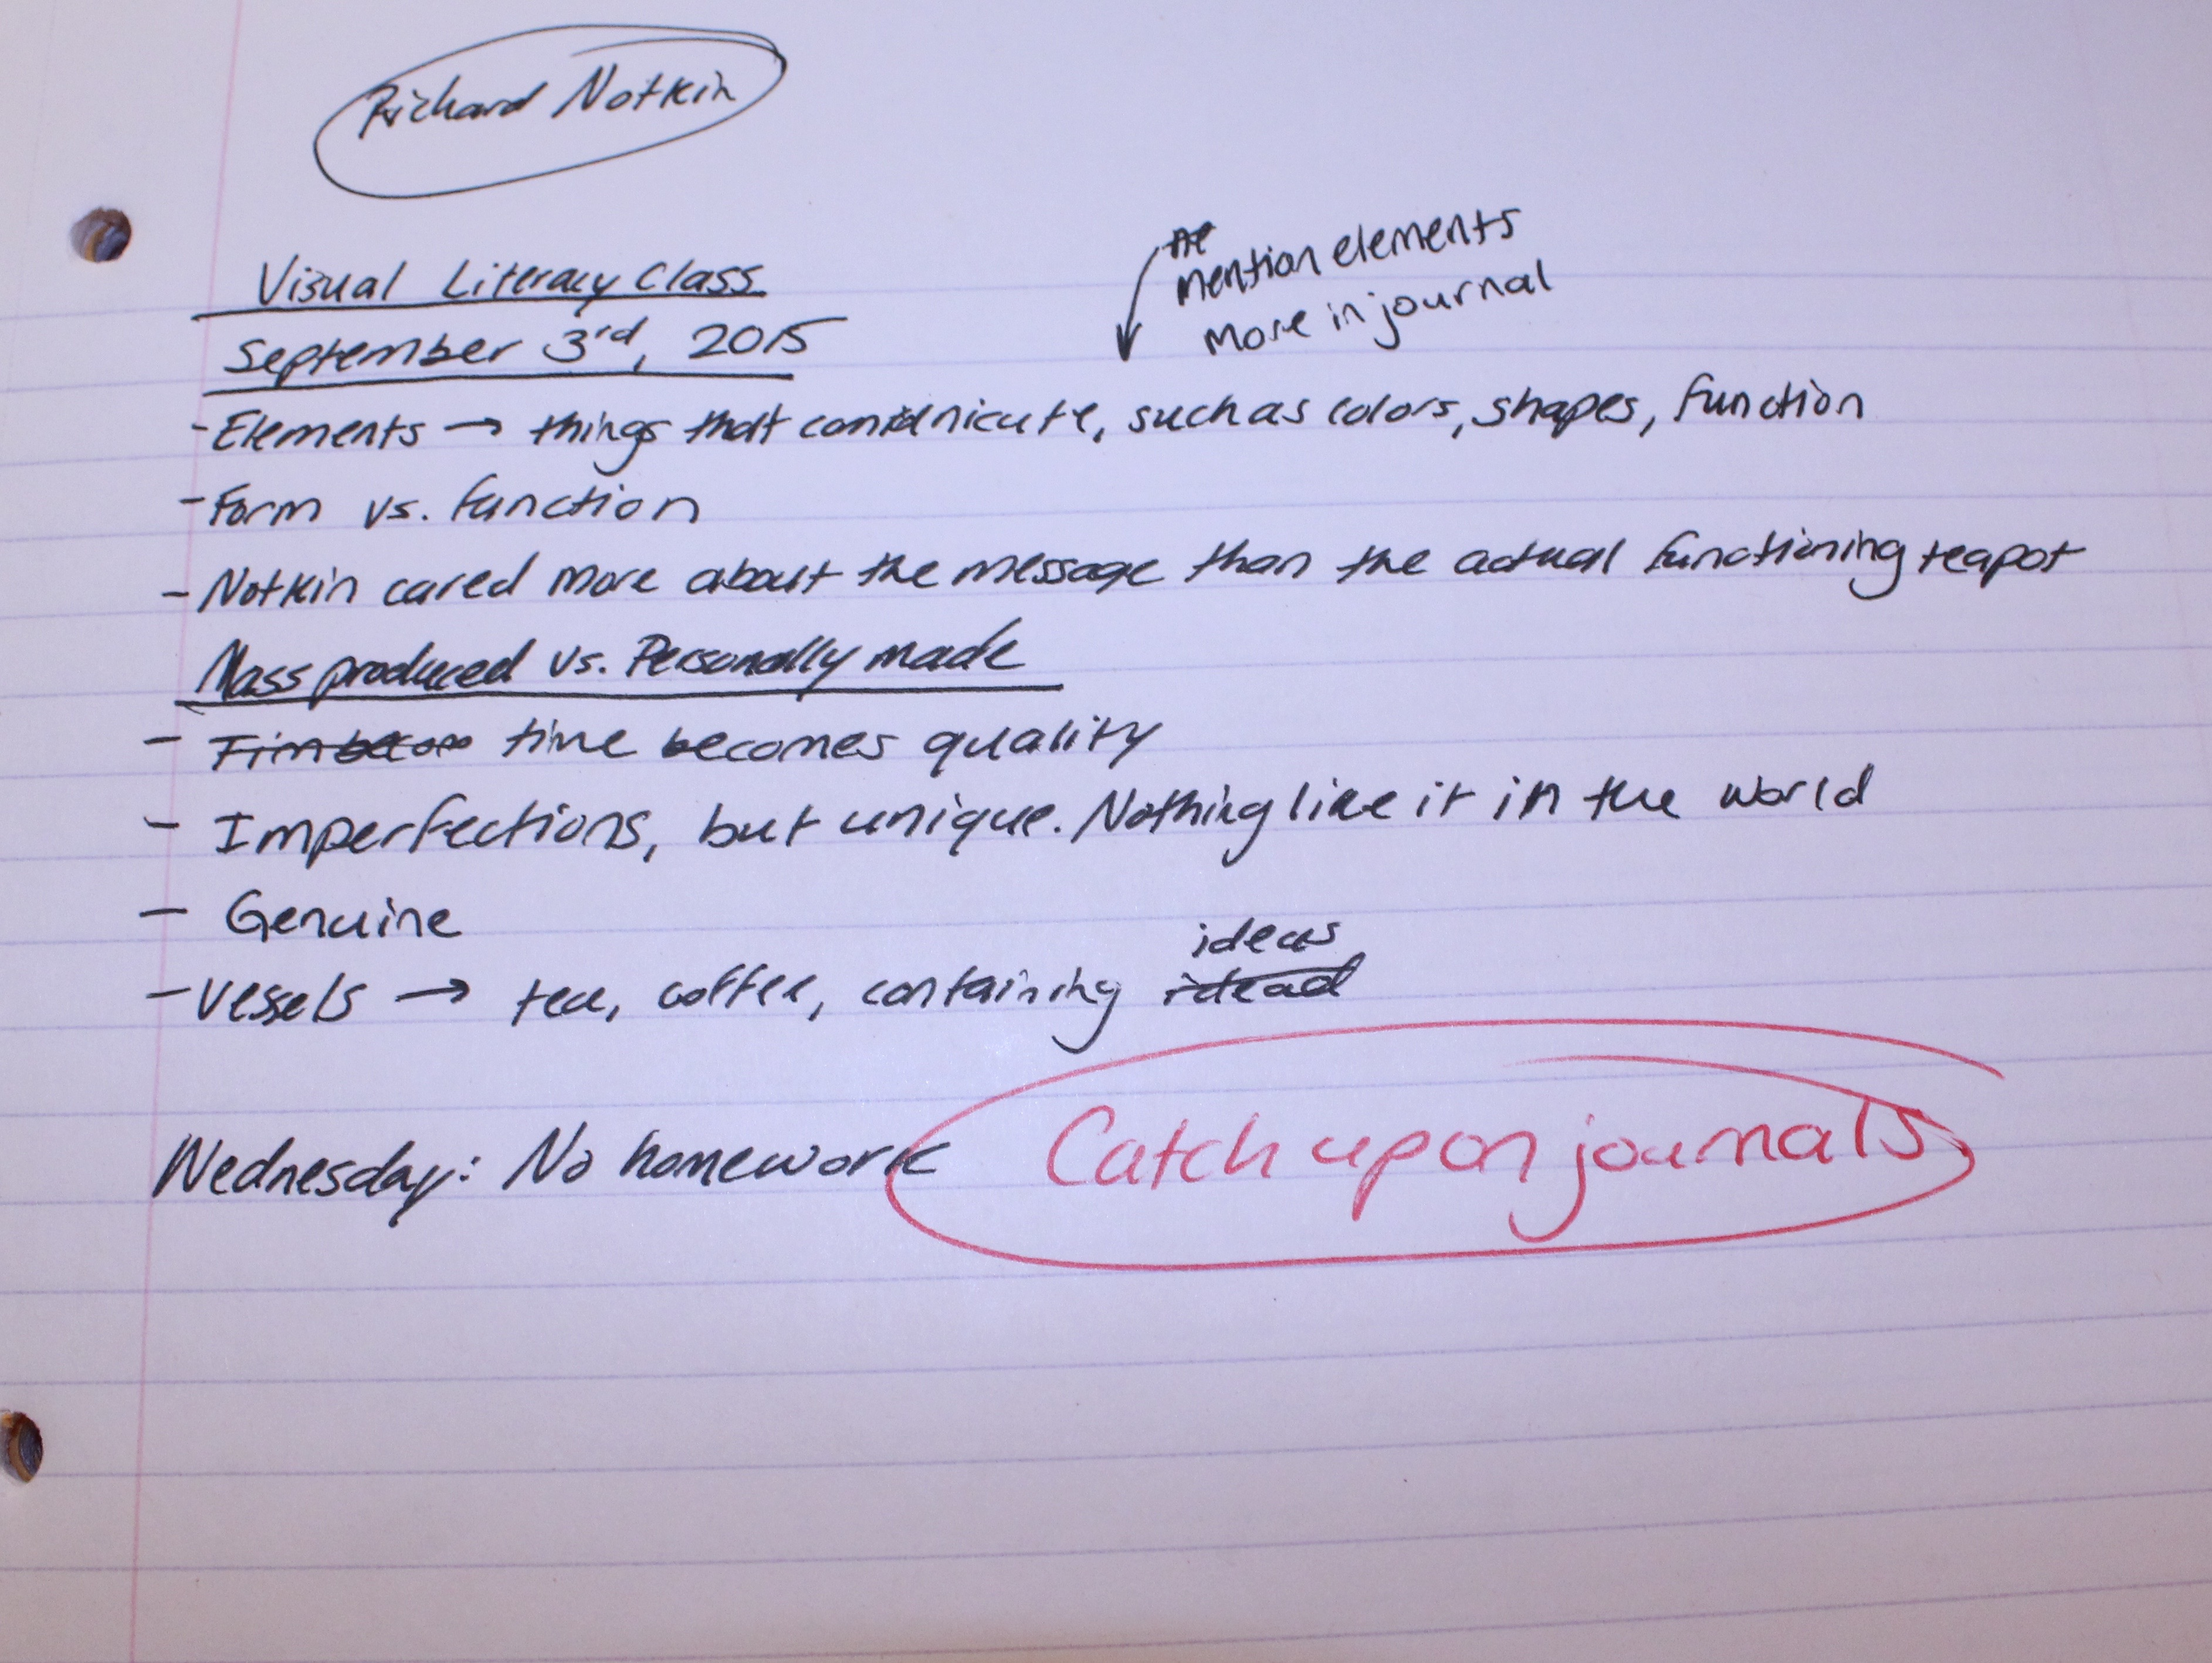 Richard Notkin
Visual Literacy Class
September 3rd, 2015
mention elements
more in journal
- Elements → things that communicate, such as colors, shapes, function
- Form vs. function
- Notkin cared more about the message than the actual functioning teapot
Mass produced vs. Personally made
- time becomes quality
- Imperfections, but unique. Nothing like it in the world
- Genuine
ideas
- Vessels → tea, coffee, containing
Wednesday: No homework
Catch up on journals